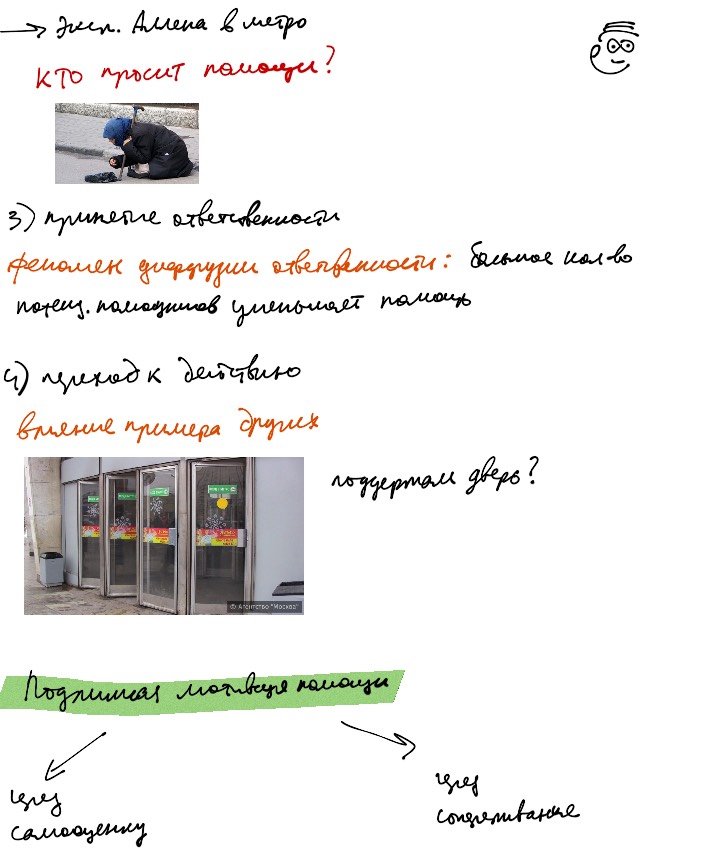 → Эксп. Аллена в метро
Кто просит помощи?
3) принятие ответственности
феномен диффузии ответственности: большое кол-во
потенц. помощников уменьшает помощь
4) переход к действию
влияние примера других
поддержали дверь?
© Агентство "Москва"
Подлинная мотивация помощи
через
самооценку
через
сопереживание